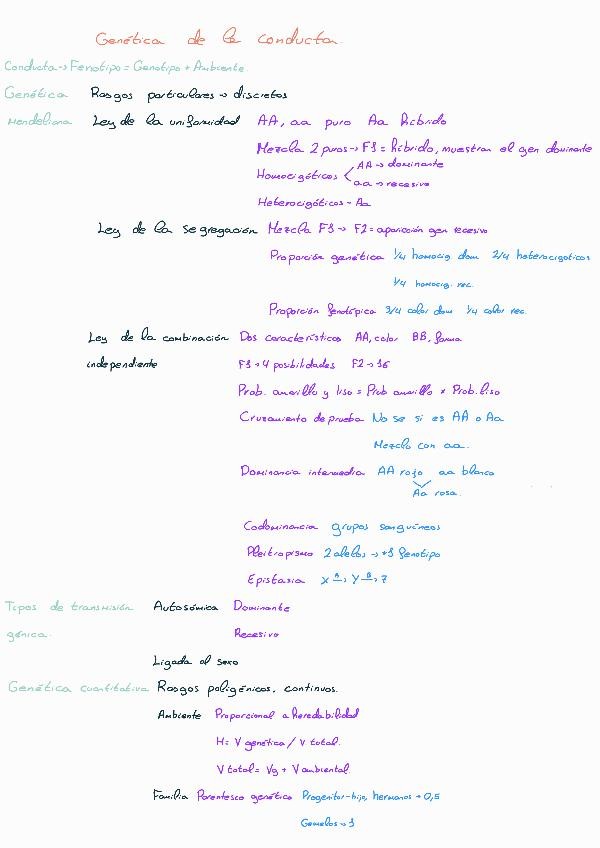 Genética de la conducta.
Conducta → Fenotipo = Genotipo + Ambiente.
Genética Rasgos particulares → discretos
Mendeliana Ley de la uniformidad AA, aa puro Aa híbrido
Mezcla 2 puros → F1 = híbrido, muestran el gen dominante
Homocigóticos AA → dominante
aa → recesivo
Heterocigóticos - Aa
Ley de la segregación Mezcla F1 → F2 = aparición gen recesivo
Proporción genética 1/4 homocig dom 2/4 heterocigoticos
1/4 homocig. rec.
Proporción fenotípica 3/4 color dom 1/4 color rec.
Ley de la combinación Dos características AA, color BB, forma
independiente F1 → 4 posibilidades F2 → 16
Prob. amarillo y liso = Prob amarillo x Prob. liso
Cruzamiento de prueba No se si es AA o Aa
Mezclo con aa.
Dominancia intermedia AA rojo aa blanco
Aa rosa.
Codominancia grupos sanguíneos
Pleitropismo 2 alelos → +1 fenotipo
Epistasia X A→ Y B→ Z
Tipos de transmisión Autosómica Dominante
génica. Recesivo
Ligada al sexo
Genética cuantitativa Rasgos poligénicos, continuos.
Ambiente Proporcional a heredabilidad
H = V genética / V total.
V total = Vg + V ambiental.
Familia Parentesco genético Progenitor-hijo, hermanos → 0,5
Gemelos → 1